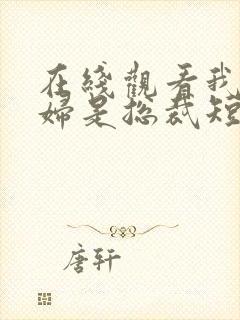 在綫觀看我
婦是總裁短
唐軒